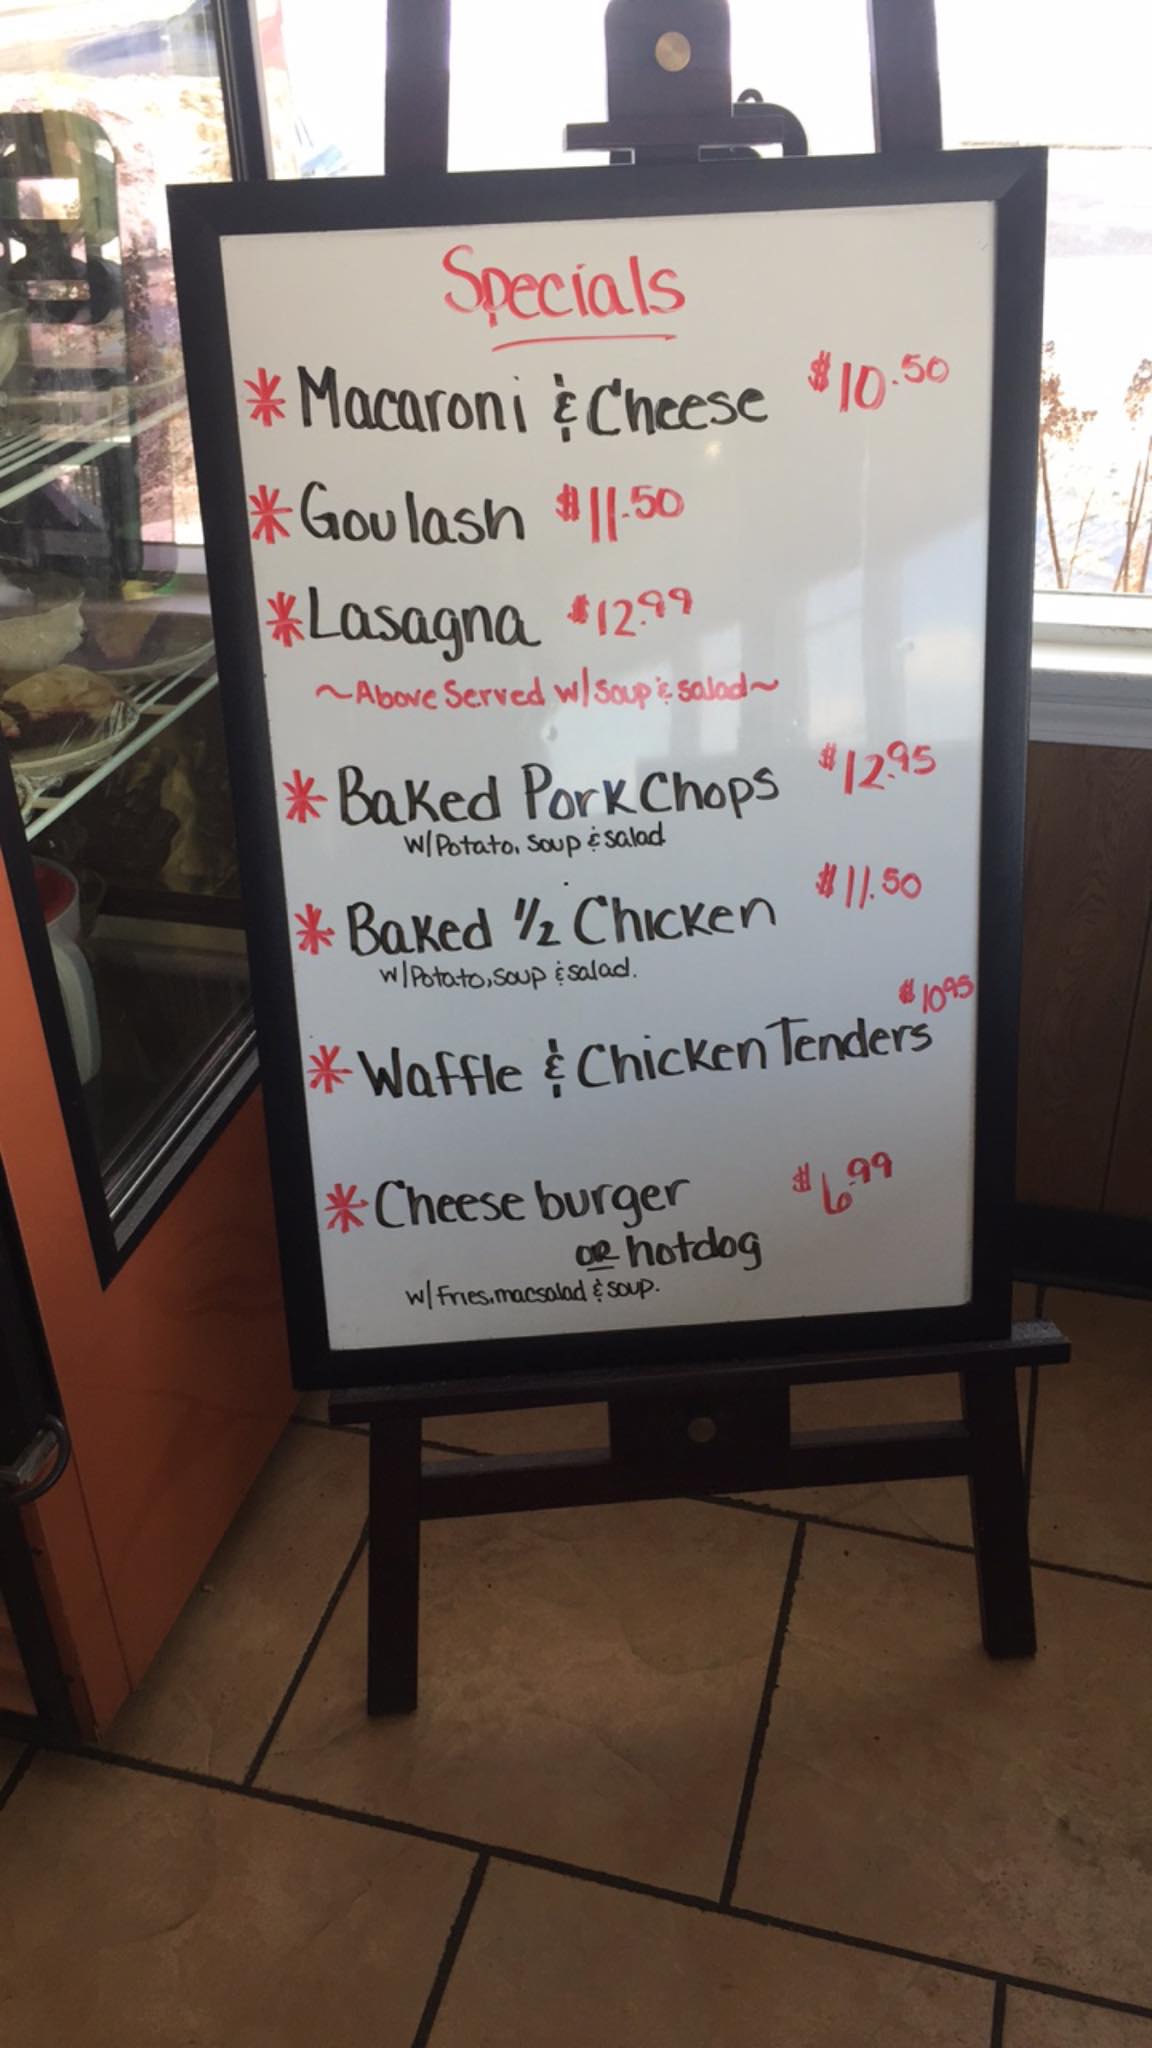 Specials
* Macaroni & Cheese $10.50
* Goulash $11.50
* Lasagna $12.99
~Above Served w/ Soup & salad~
* Baked Pork Chops $12.95
w/Potato, Soup & salad
* Baked 1/2 Chicken $11.50
w/Potato, soup & salad.
* Waffle & Chicken Tenders $10.95
* Cheese burger $6.99
OR hotdog
w/ Fries, macsalad & soup.